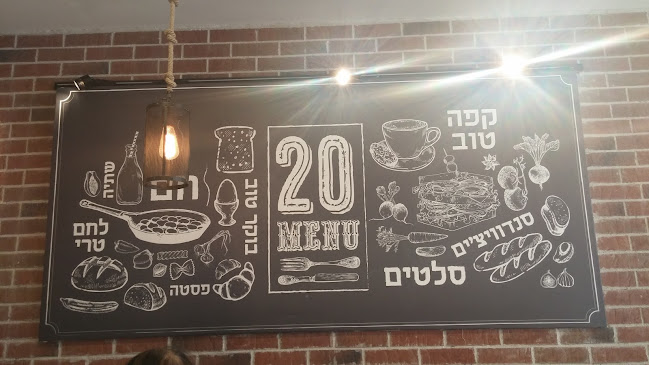 קפה
טוב
סנדוויצ'ים
סלטים
20
MENU
בוקר טוב
חם
שתיה
לחם
טרי
פסטה